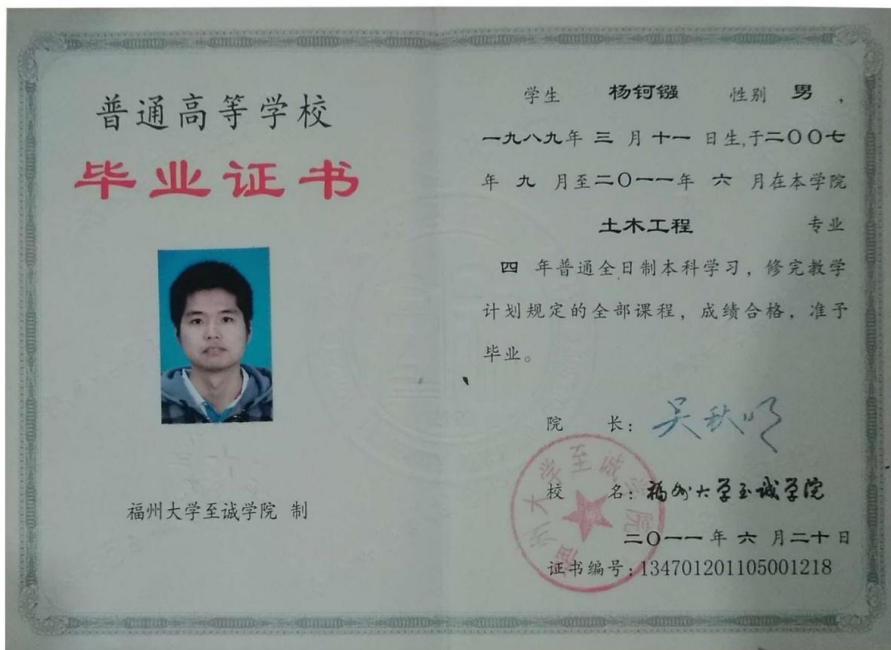 普通高等学校
毕业证书
福州大学至诚学院 制
学生 杨钶镪 性别 男 ,
一九八九年 三 月 十一 日生,于二〇〇七
年 九 月至二〇一一年 六 月在本学院
土木工程 专业
四 年普通全日制本科学习，修完教学
计划规定的全部课程，成绩合格，准予
毕业。
院 长: 吴秋明
校 名: 福州大学至诚学院
福州大学至诚学院
二〇一一 年 六 月二十日
证书编号:134701201105001218